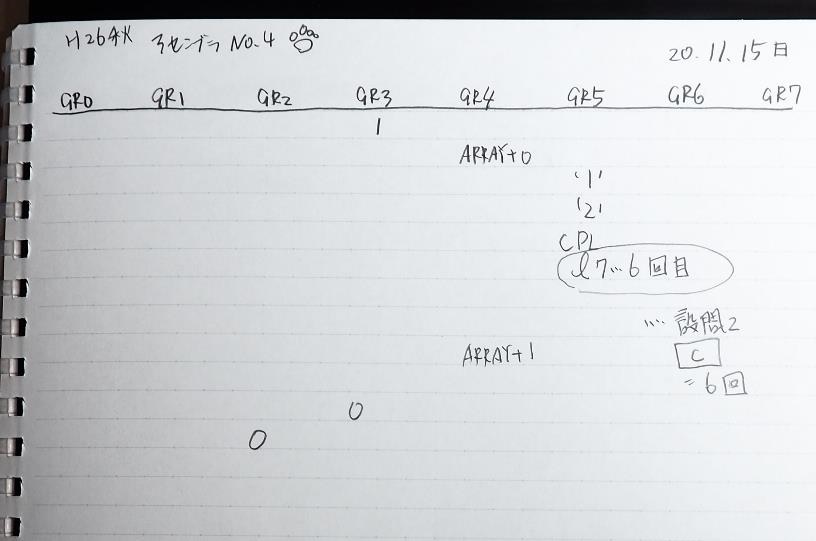 H26秋 アセンブラ No.4
20.11.15日
GR0 GR1 GR2 GR3 GR4 GR5 GR6 GR7
1
ARRAY+0
'1'
'2'
CPL
l7…6回目
…設問2
ARRAY+1 c
=6回
0
0